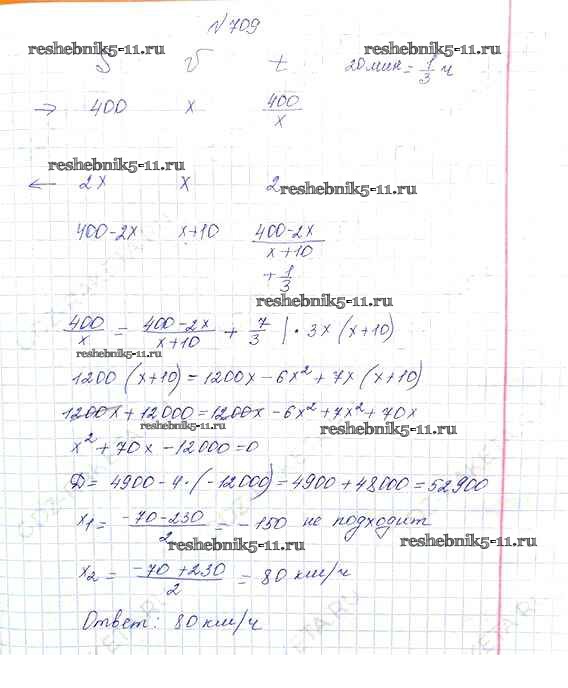 №709
reshebnik5-11.ru reshebnik5-11.ru
S v t 20 мин = 1/3 ч
→ 400 x 400/x
reshebnik5-11.ru
← 2x x 2 reshebnik5-11.ru
400-2x x+10 (400-2x)/(x+10)
+ 1/3
reshebnik5-11.ru
400/x = (400-2x)/(x+10) + 7/3 | · 3x (x+10)
reshebnik5-11.ru
1200 (x+10) = 1200x - 6x² + 7x (x+10)
1200x + 12000 = 1200x - 6x² + 7x² + 70x
reshebnik5-11.ru reshebnik5-11.ru
x² + 70x - 12000 = 0
D = 4900 - 4·(-12000) = 4900 + 48000 = 52900
x₁ = (-70-230)/2 = -150 не подходит
reshebnik5-11.ru reshebnik5-11.ru
x₂ = (-70+230)/2 = 80 км/ч
Ответ: 80 км/ч